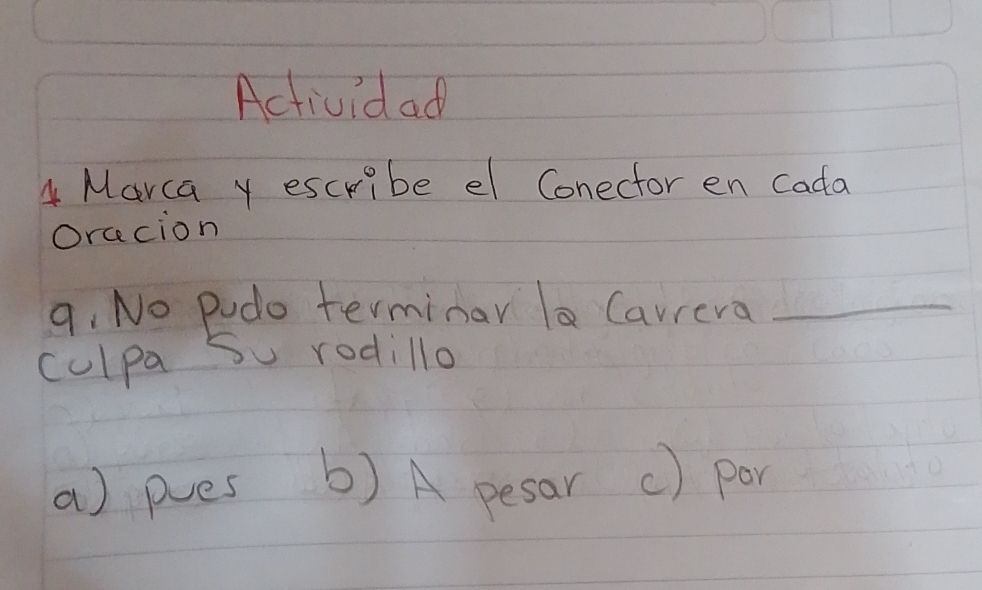 Actividad
1 Marca y escribe el Conector en cada
Oracion
9. No pudo terminar la Carrera ______
culpa su rodillo
a) pues b) A pesar c) por